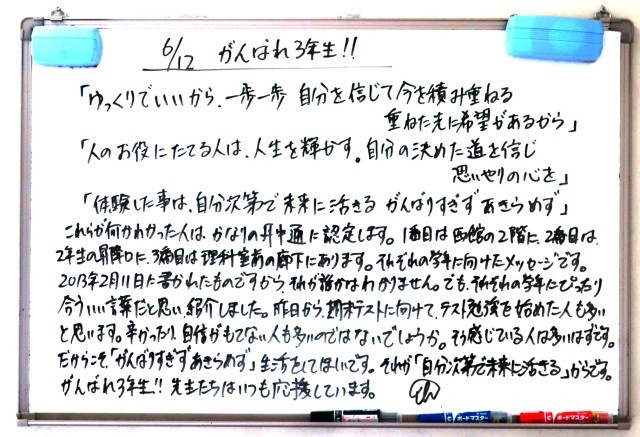 6/12 がんばれ3年生!!
「ゆっくりでいいから、一歩一歩 自分を信じて今を積み重ねる
重ねた先に希望があるから」
「人のお役にたてる人は、人生を輝かす。自分の決めた道を信じ
思いやりの心を」
「体験した事は、自分次第で未来に活きる がんばりすぎず あきらめず」
これらが何かわかった人は、かなりの 中通に認定します。1番目は西館の2階に、2番目は、
2年生の昇降口に、3番目は理科室前の廊下にあります。それぞれの学年に向けたメッセージです。
2013年2月11日に書かれたものですから、それが誰かはわかりません。でも、それぞれの学年にぴったり
合ういい言葉だと思い、紹介しました。昨日から、期末テストに向けて、テスト勉強を始めた人も多い
と思います。辛かったり、自信がもてない人も多いのではないでしょうか。そう感じている人は多いはずです。
だからこそ、「がんばりすぎず あきらめず」生活をしてほしいです。それが「自分次第で未来に活きる」からです。
がんばれ3年生!! 先生たちはいつも応援しています。
ボードマスター ボードマスター